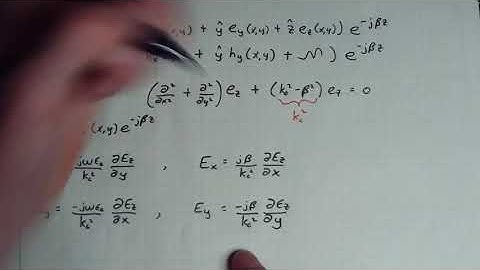 ,y) + ŷ e_y(x,y) + ẑ e_z(x,y)) e^{-jβz}
+ ŷ h_y(x,y) + ) e^{-jβz}
(∂²/∂x² + ∂²/∂y²) e_z + (k_ε² - β²) e_z = 0
k_c²
(x,y) e^{-jβz}
jωε_ε/k_c² ∂E_z/∂y , E_x = jβ/k_c² ∂E_z/∂x
= -jωε_ε/k_c² ∂E_z/∂x , E_y = -jβ/k_c² ∂E_z/∂y